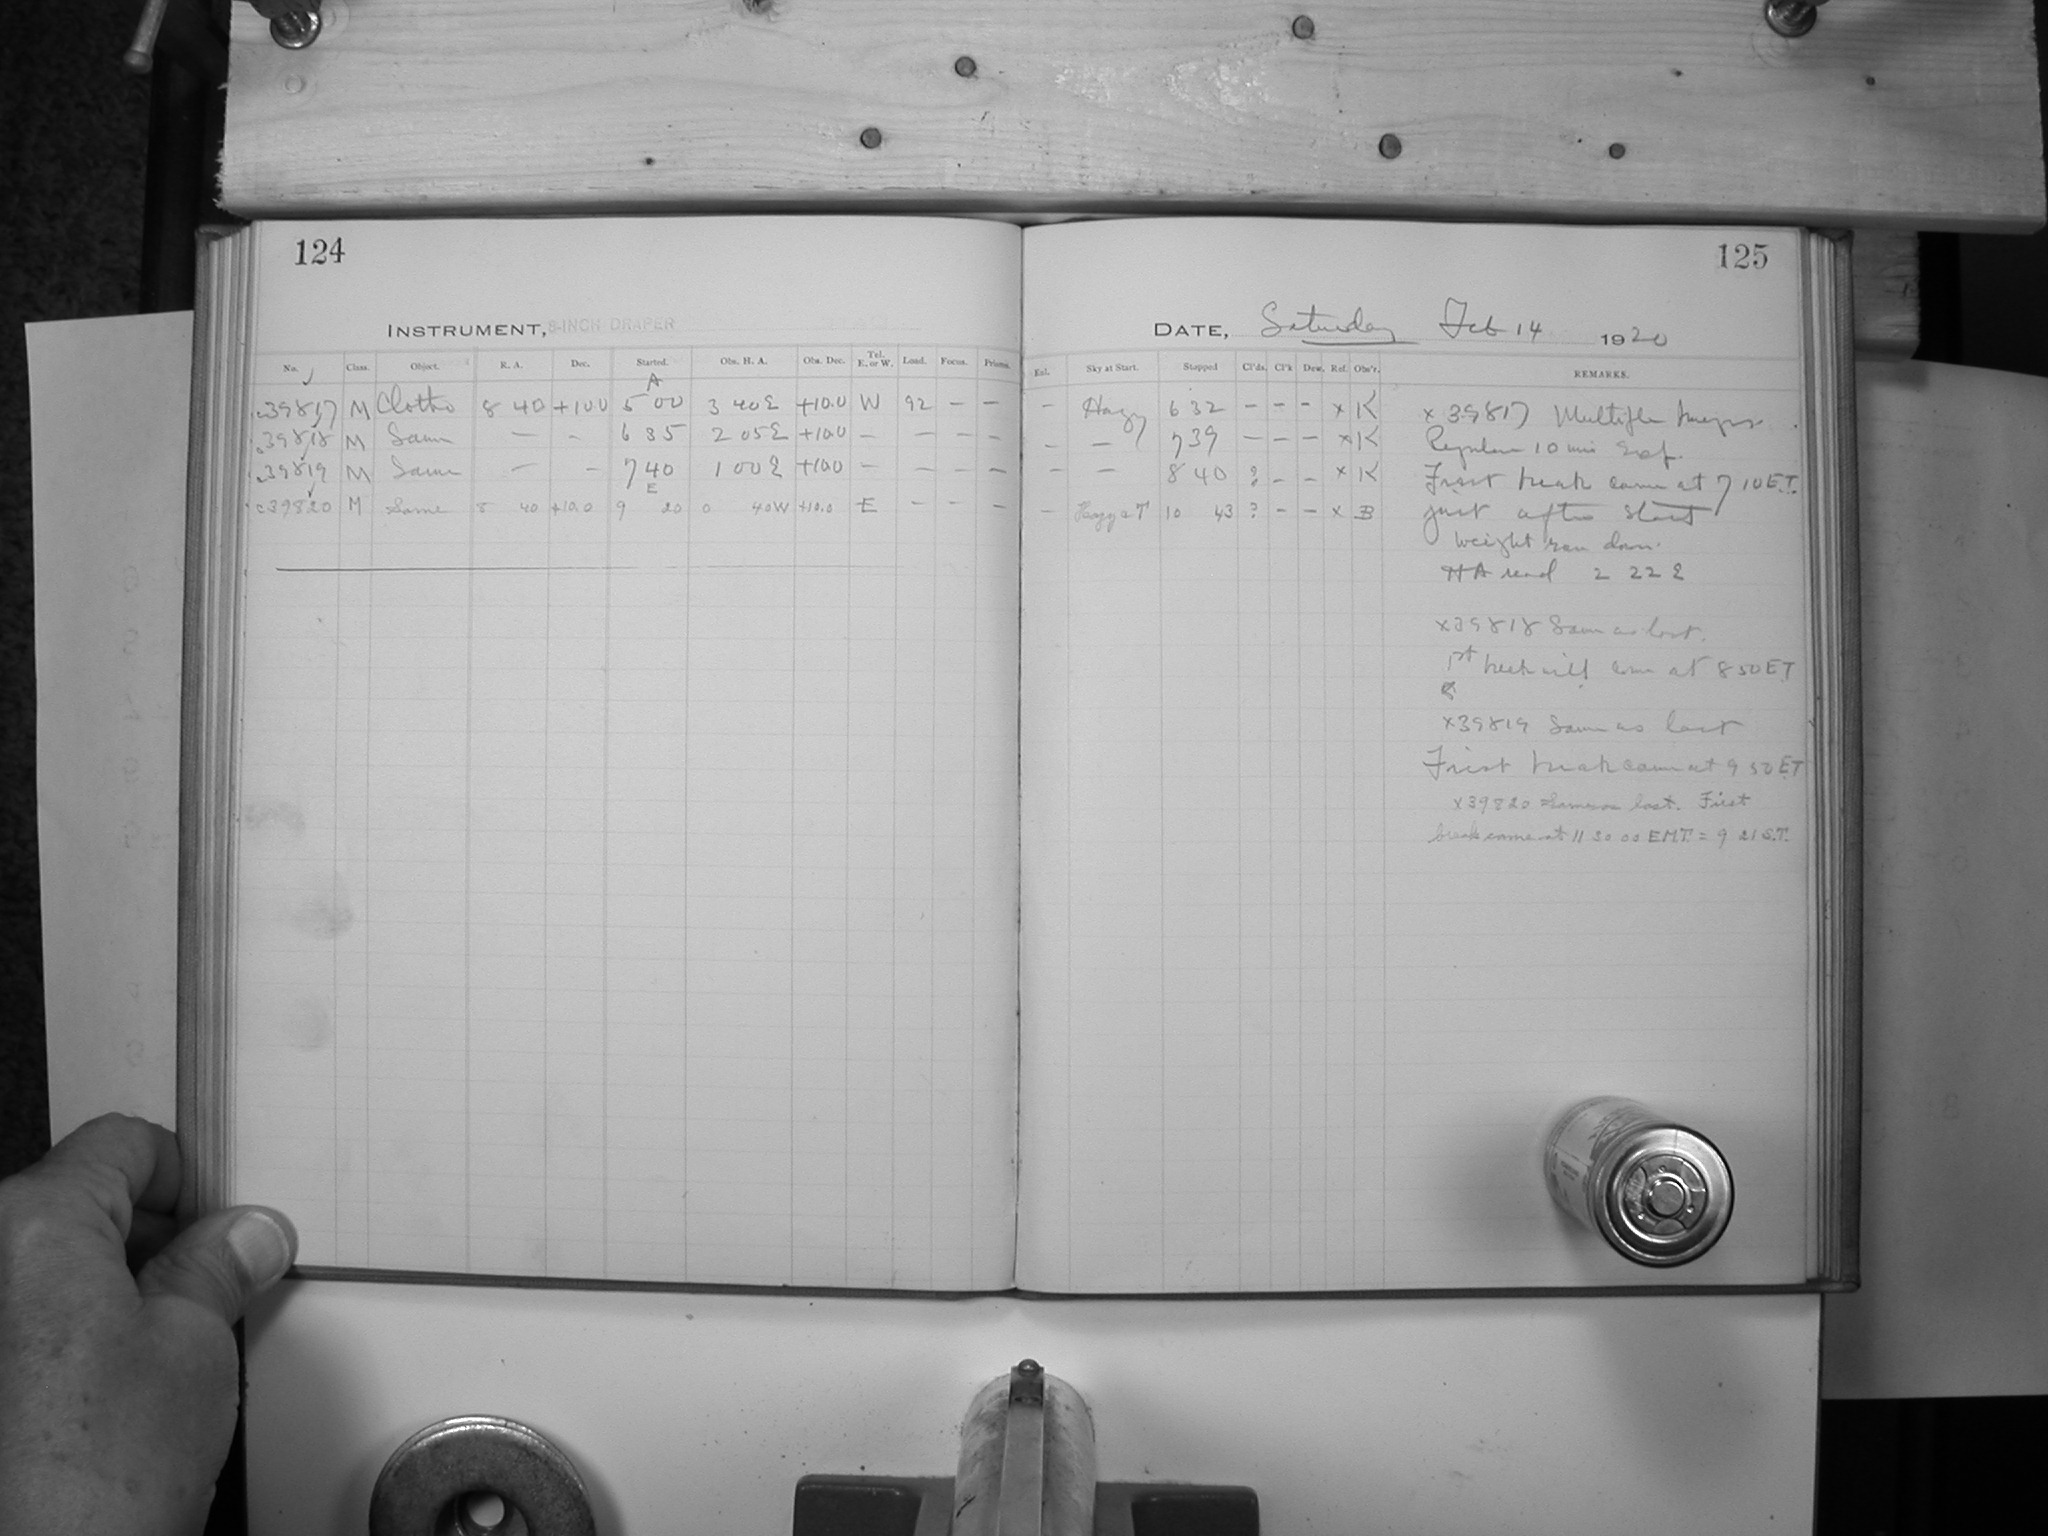 124
INSTRUMENT, 8-INCH DRAPER
No. Class. Object. R. A. Dec. Started. Obs. H. A. Obs. Dec. Tel. E. or W. Load. Focus. Prisms.
A
c39817 M Clotho 8 40 +10.0 5 00 3 40 E +10.0 W 92 — —
c39818 M Same — - 6 35 2 05 E +10.0 — — — —
c39819 M Same — - 7 40 1 00 E +10.0 — — — —
E
c39820 M Same 8 40 +10.0 9 20 0 40 W +10.0 E — — —
125
DATE, Saturday Feb 14 1920
Enl. Sky at Start. Stopped Cl'ds. Cl'k Dew. Ref. Obs'r. REMARKS.
— Hazy 6 32 — — — x K x 39817 Multiple
— — 7 39 — — — x K Regular 10 min
— — 8 40 ? — — x K First break came at 7 10 E.T.
— Hazy & T 10 43 ? — — x B just after start
weight ran down.
HA read 2 22 E
x39818 Same as last.
1st break will come at 8 50 ET
x39819 Same as last
First break came at 9 50 ET
x39820 Same as last. First
break came at 11 30 00 EMT. = 9 21 S.T.